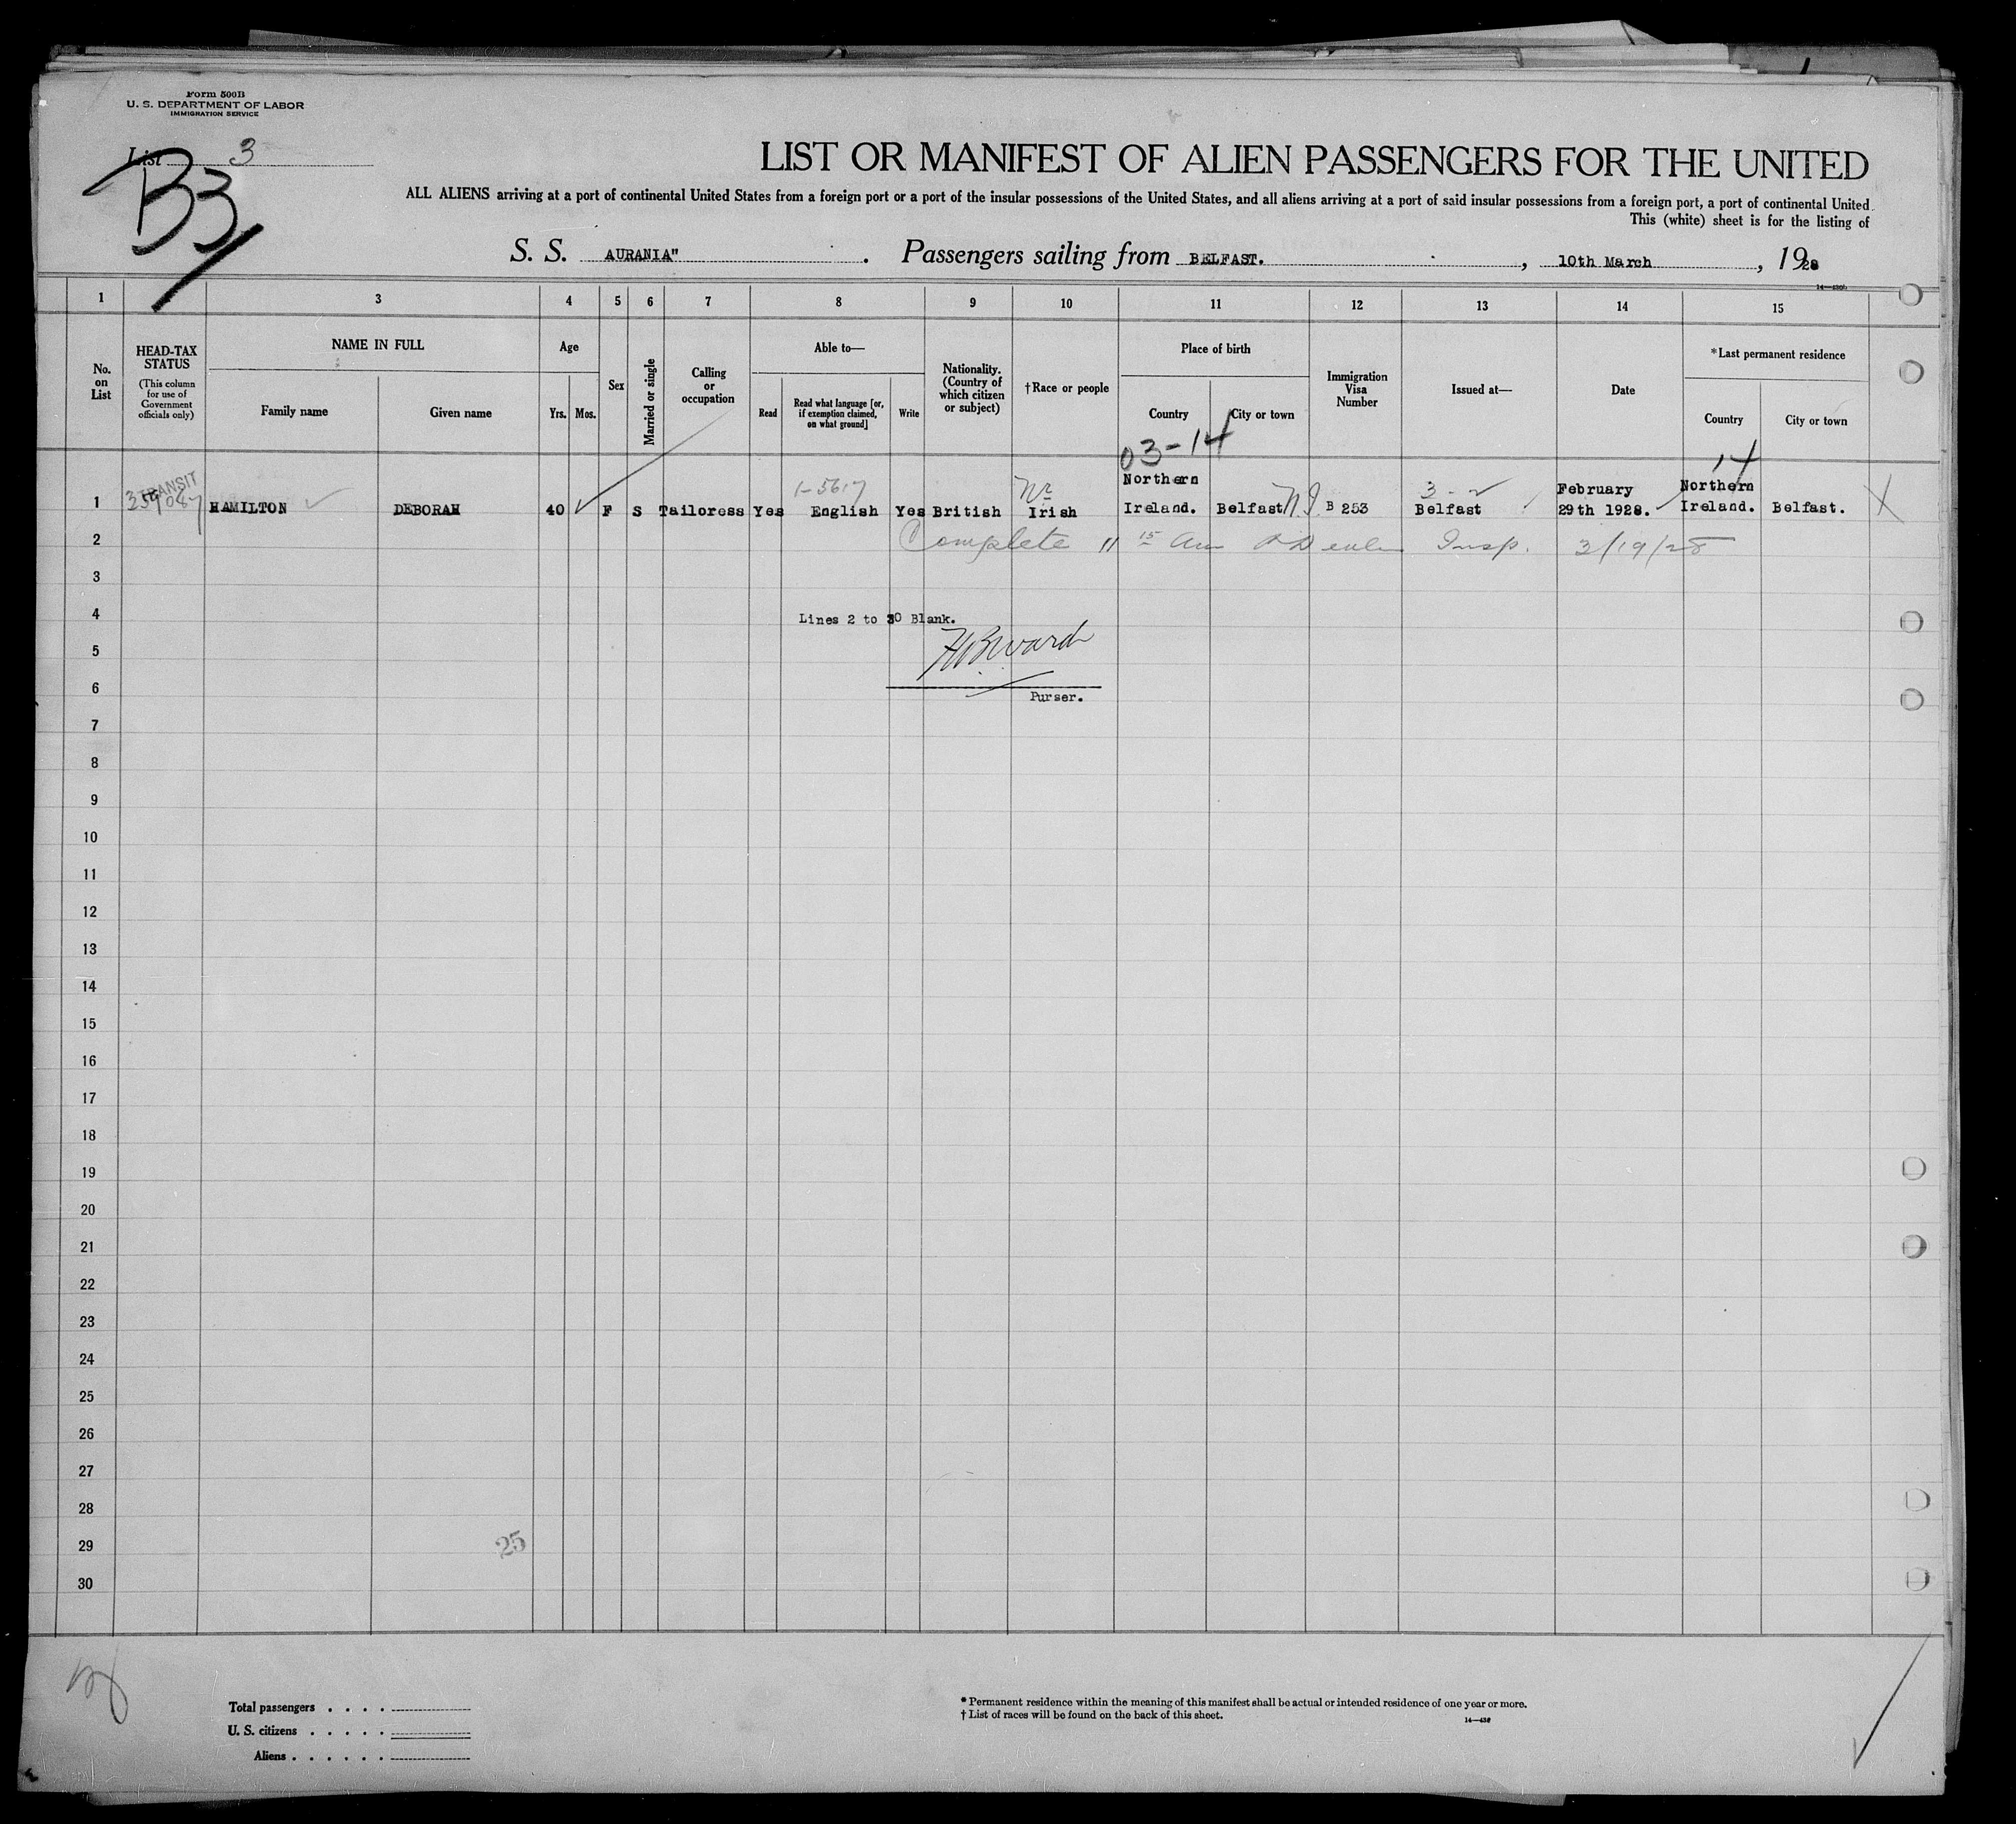 Form 500B
U. S. DEPARTMENT OF LABOR
IMMIGRATION SERVICE
List 3
B3
LIST OR MANIFEST OF ALIEN PASSENGERS FOR THE UNITED
ALL ALIENS arriving at a port of continental United States from a foreign port or a port of the insular possessions of the United States, and all aliens arriving at a port of said insular possessions from a foreign port, a port of continental United
This (white) sheet is for the listing of
S. S. AURANIA". Passengers sailing from BELFAST. , 10th March , 1928
1 3 4 5 6 7 8 9 10 11 12 13 14 15
No. on List
HEAD-TAX STATUS
(This column for use of Government officials only)
NAME IN FULL
Family name
Given name
Age
Yrs. Mos.
Sex
Married or single
Calling or occupation
Able to—
Read
Read what language [or, if exemption claimed, on what ground]
Write
Nationality. (Country of which citizen or subject)
†Race or people
Place of birth
Country
City or town
Immigration Visa Number
Issued at—
Date
*Last permanent residence
Country
City or town
03-14
14
TRANSIT
1 HAMILTON DEBORAH 40 F S Tailoress Yes English Yes British Irish Northern Ireland. Belfast N.I. B 253 Belfast February 29th 1928. Northern Ireland. Belfast.
2 Complete Insp. 3/19/28
3
4
Lines 2 to 30 Blank.
5
6
Purser.
7
8
9
10
11
12
13
14
15
16
17
18
19
20
21
22
23
24
25
26
27
28
29
25
30
Total passengers . . . .
U. S. citizens . . . . .
Aliens . . . . . .
* Permanent residence within the meaning of this manifest shall be actual or intended residence of one year or more.
† List of races will be found on the back of this sheet.